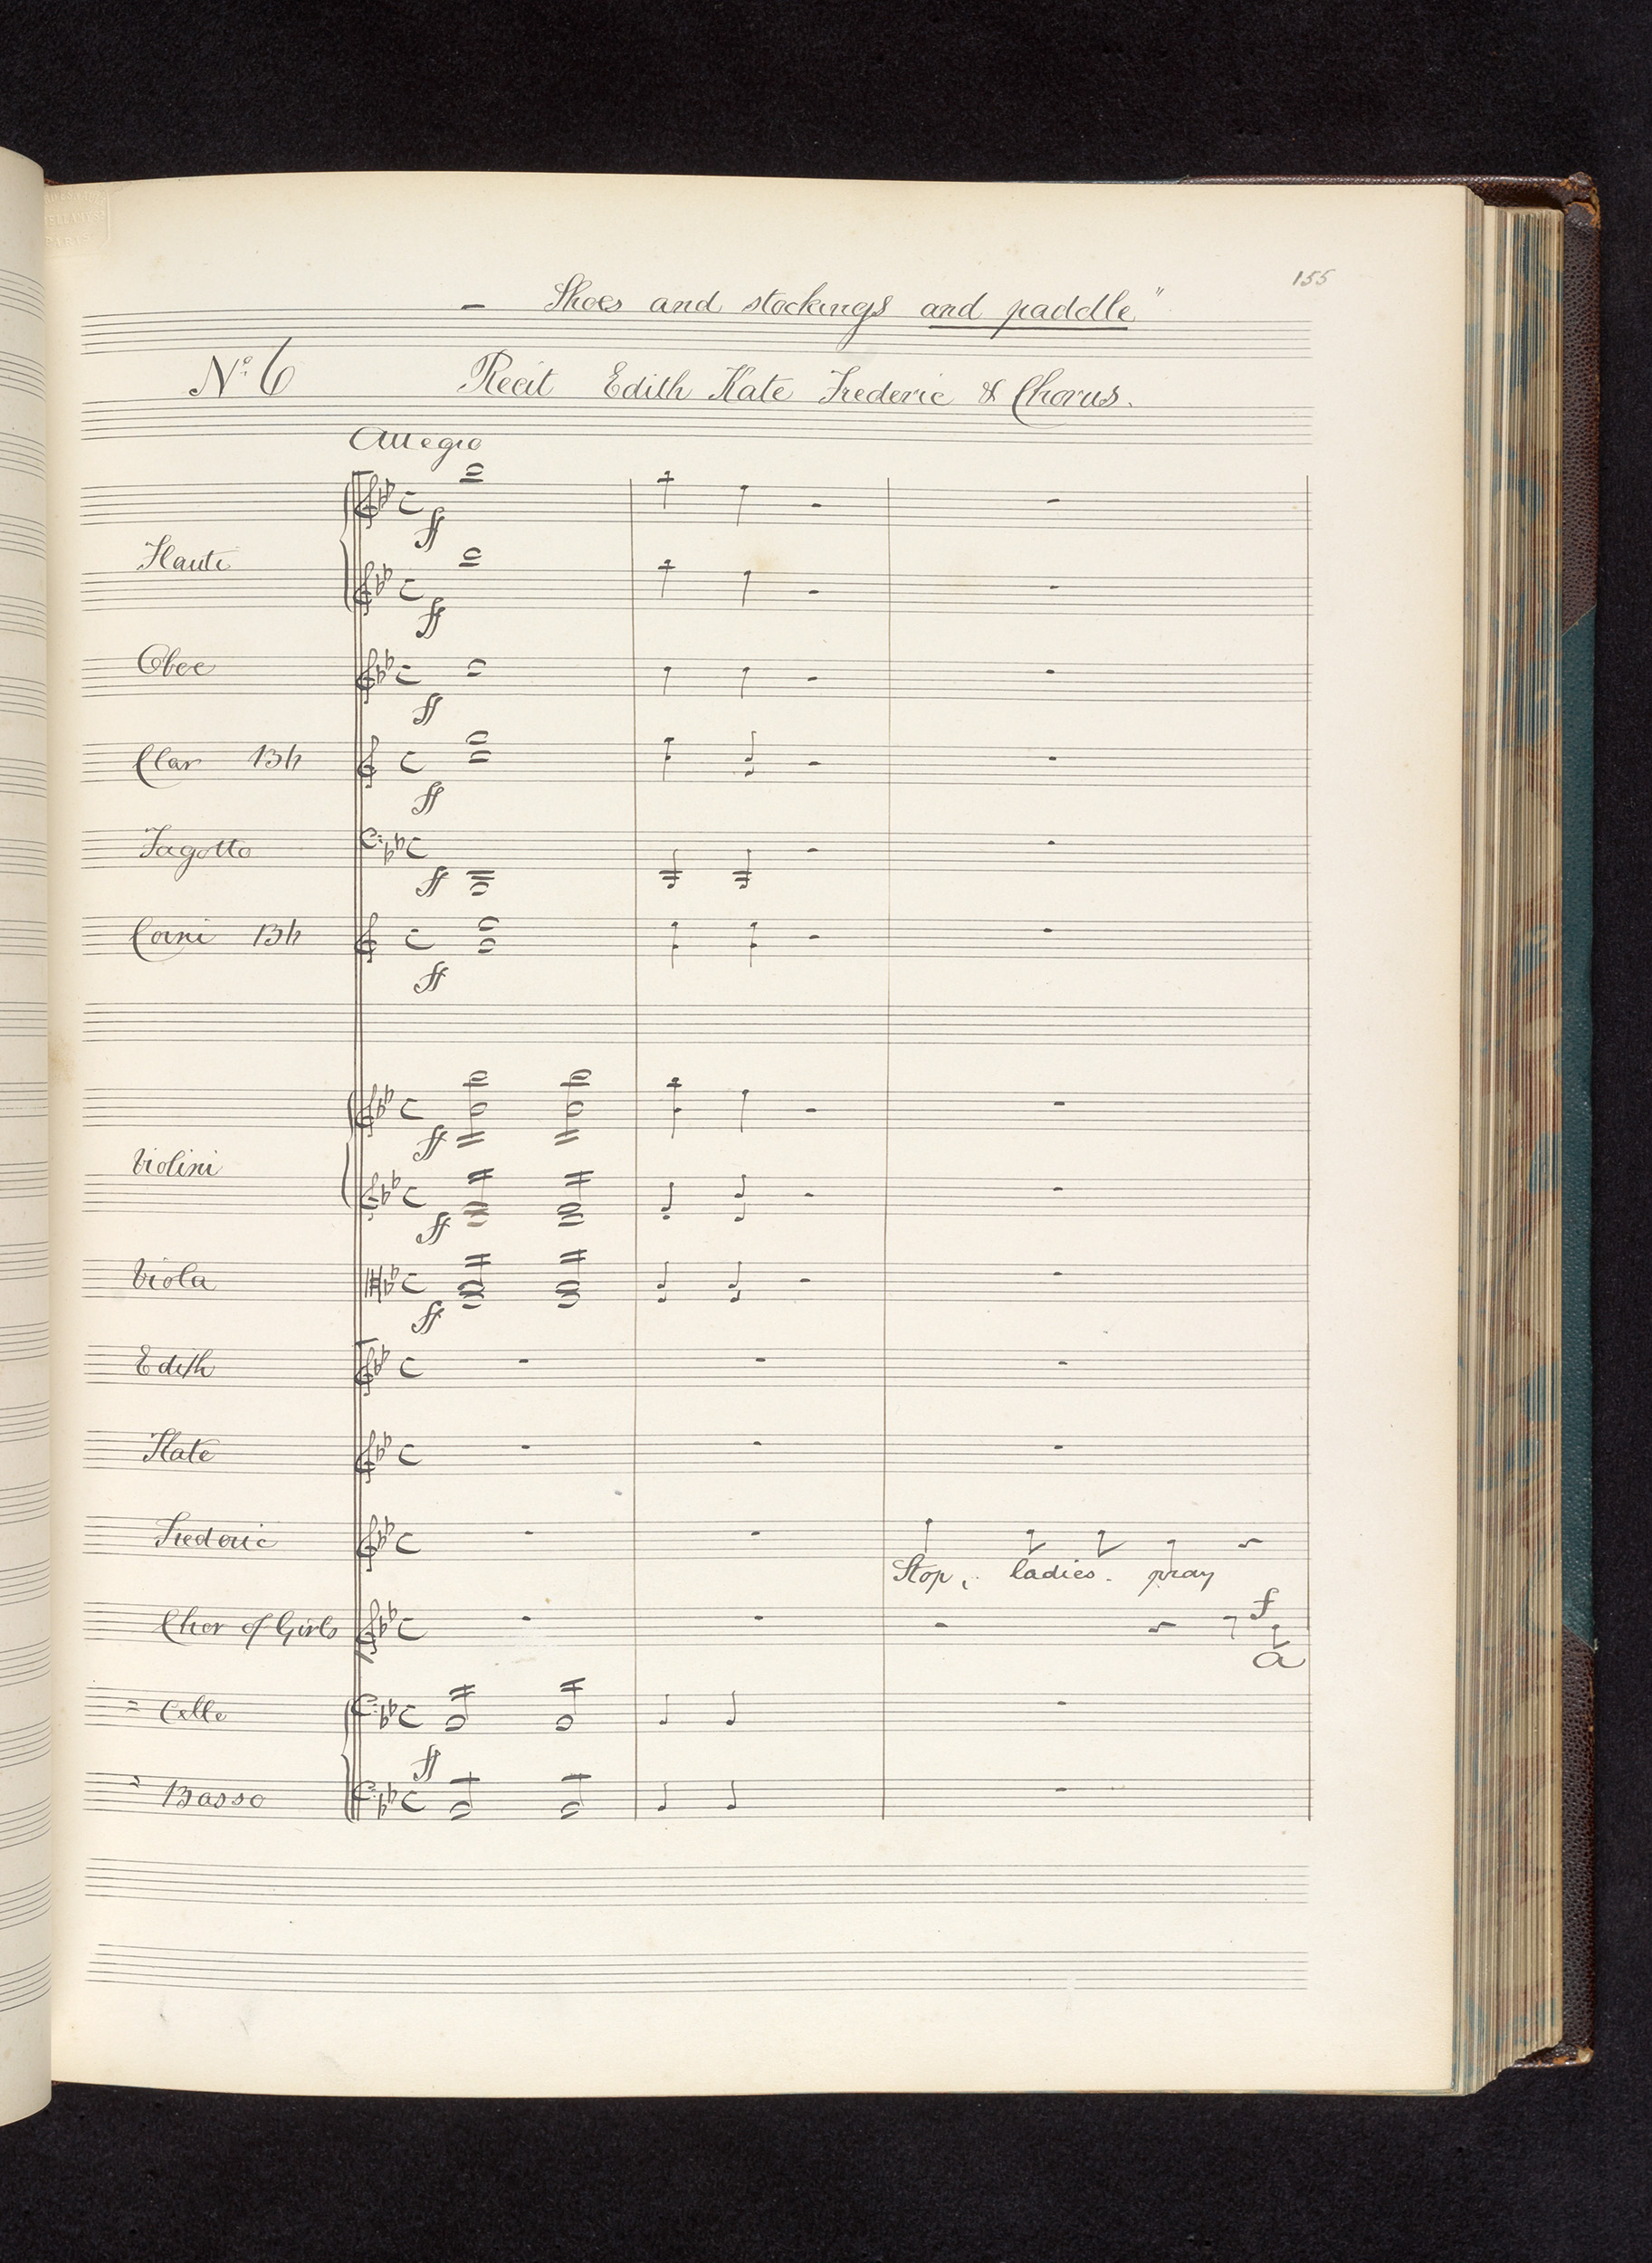 155
— Shoes and stockings and paddle"
No. 6 Recit Edith Kate Frederic & Chorus.
Allegro
ff
Flauti
ff
Oboe
ff
Clar Bb
ff
Fagotto
ff
Corni Bb
ff
ff
Violini
ff
Viola
ff
Edith
Kate
Frederic
Stop, ladies. pray
f
Chor of Girls
a
= Celle
ff
= Basso